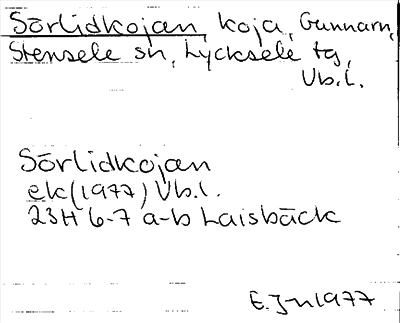 Sörlidkojan, koja, Gunnarn,
Stensele sn, Lycksele tg,
Vb.l.
Sörlidkojan
ek (1977) Vb.l.
23H 6-7 a-b Laisbäck
E. Jn 1977